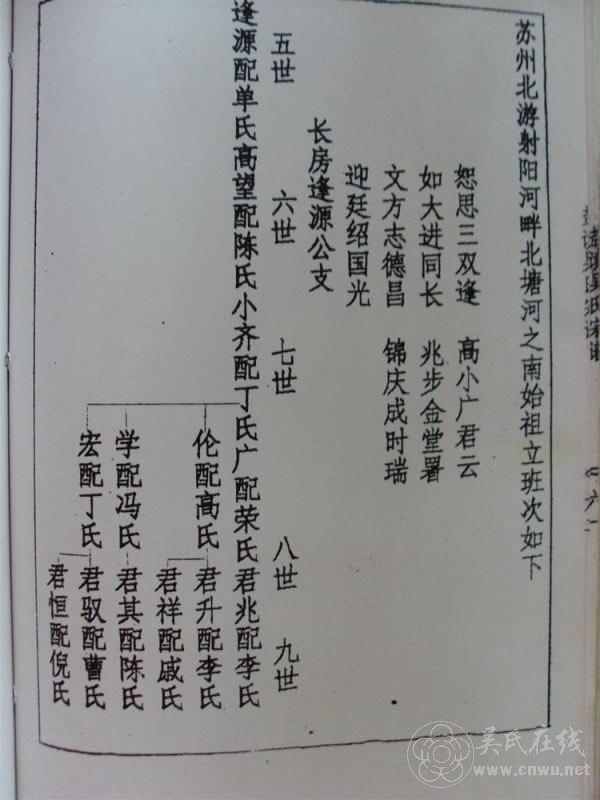 苏州北游射阳河畔北塘河之南始祖立班次如下
恕思三双逢 高小广君云
如大进同长 兆步金堂署
文方志德昌 锦庆成时瑞
迎廷绍国光
长房逢源公支
五世 六世 七世 八世 九世
逢源配单氏高望配陈氏小齐配丁氏广配荣氏君兆配李氏
伦配高氏君升配李氏
君祥配戚氏
学配冯氏君其配陈氏
宏配丁氏君驭配曹氏
君恒配倪氏
吴氏在线
www.cnwu.net